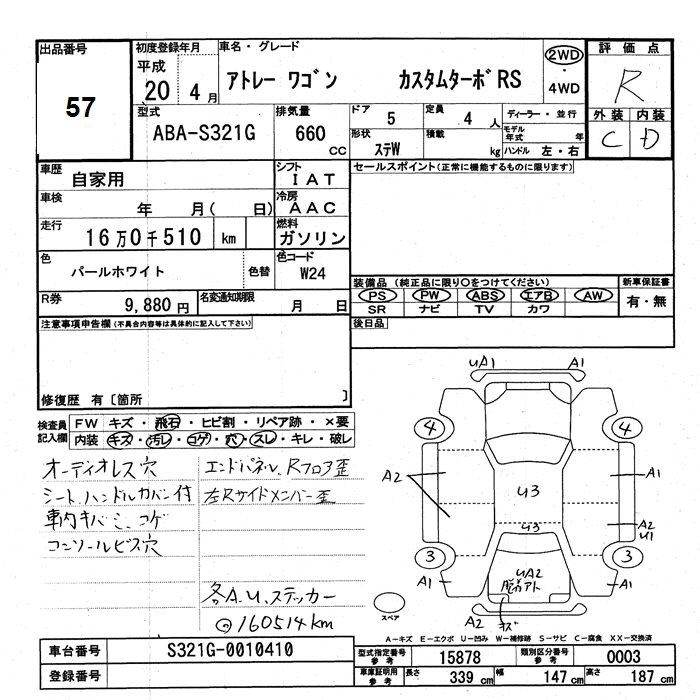 出品番号
57
初度登録年月
平成
20 4月
車名・グレード
アトレー ワゴン カスタムターボRS
2WD
・
4WD
評価点
R
外装 内装
C D
型式
ABA-S321G
排気量
660
CC
ドア
5
定員
4人
形状
ステW
積載
kg
ディーラー・並行
モデル年式 年
ハンドル 左・右
車歴
自家用
シフト
IAT
車検
年 月( 日)
冷房
AAC
走行
16万0千510 km
燃料
ガソリン
色
パールホワイト
色替
色コード
W24
R券
9,880円
名変通知期限
月 日
セールスポイント(正常に機能するものに限ります)
装備品(純正品に限り○をつけてください)
新車保証書
PS PW ABS エアB AW
有・無
SR ナビ TV カワ
後日品
注意事項申告欄(不具合内容等は具体的に記入して下さい)
修復歴 有〔箇所 〕
検査員記入欄
FW キズ・飛石・ヒビ割・リペア跡・×要
内装 キズ・汚レ・コゲ・穴・スレ・キレ・破レ
オーディオレス穴
シート、ハンドルカバー付
車内キバミ、コゲ
コンソールビス穴
エンドパネル、Rフロア歪
左Rサイドメンバー歪
各A.U.ステッカー
@160514km
UA1 A1
4 4
A2 U3 A1
A2
U1
U3
3 3
A1 A1
UA2
A2 キズ
スペア
A－キズ E－エクボ U－凹み W－補修跡 S－サビ C－腐食 XX－交換済
車台番号
S321G-0010410
登録番号
型式指定番号参考
15878
類別区分番号参考
0003
車庫証明用参考
長さ 339 cm
幅 147 cm
高さ 187 cm